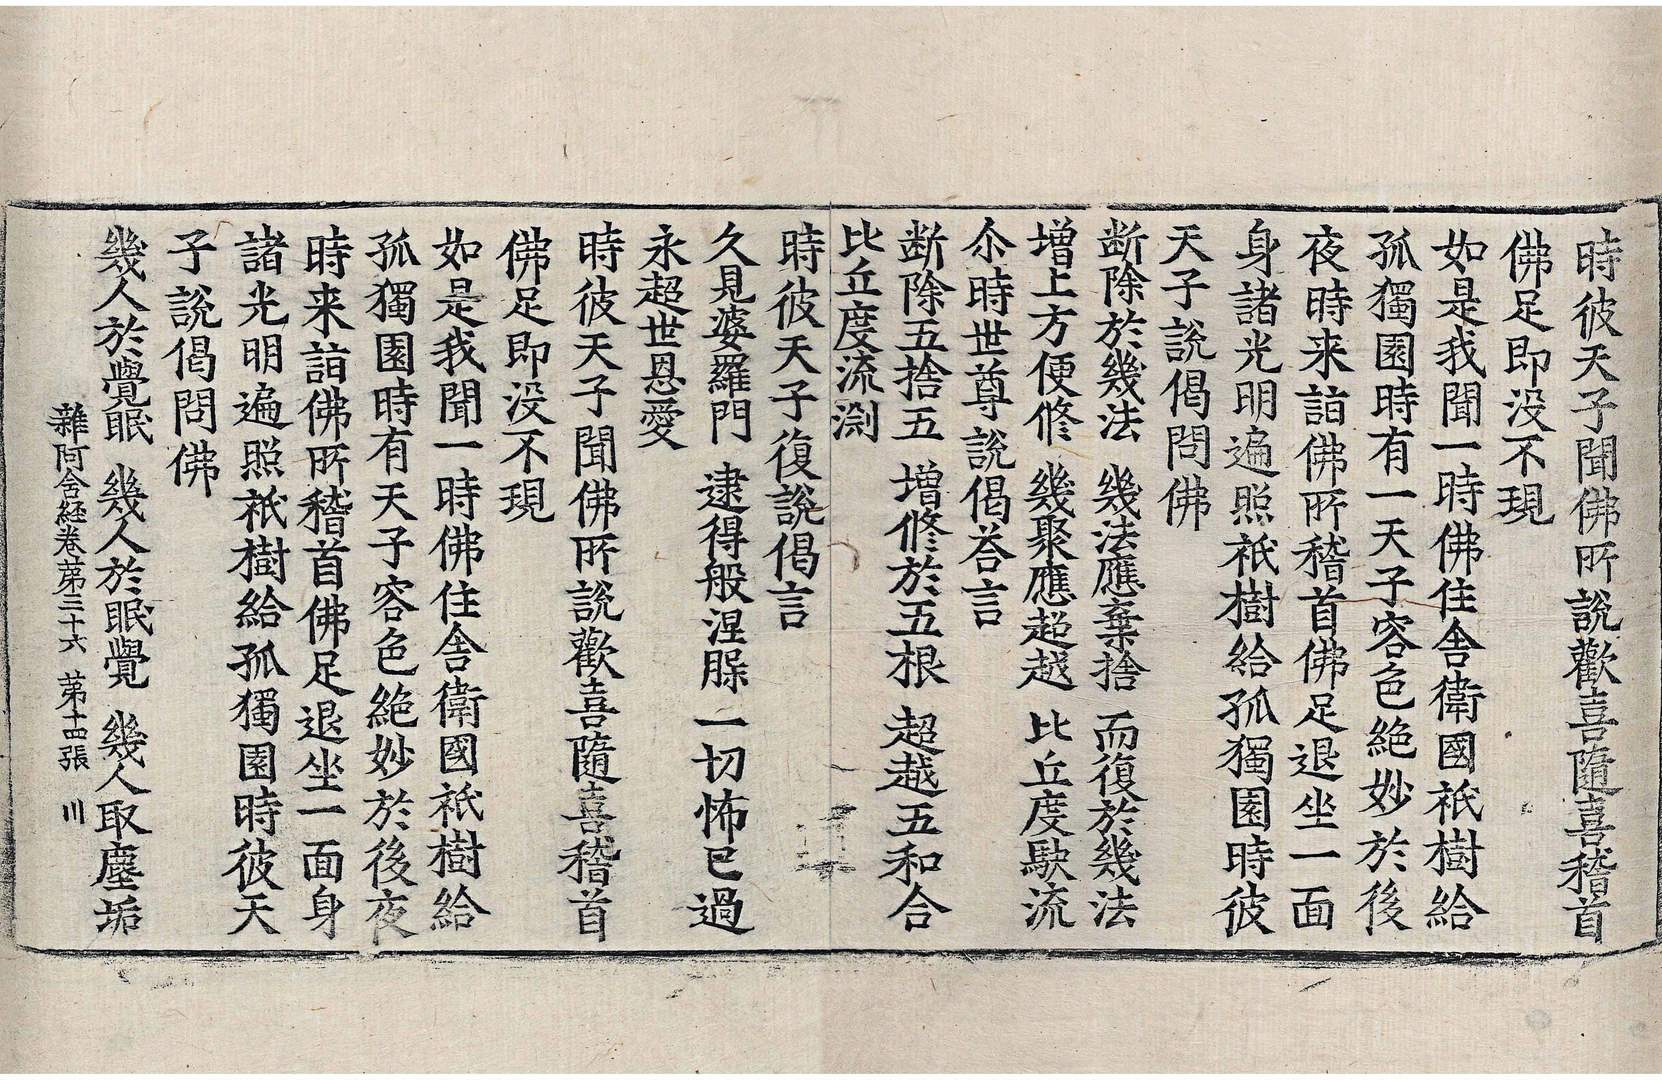 時彼天子聞佛所說歡喜隨喜稽首
佛足即没不現
如是我聞一時佛住舎衛國祇樹給
孤獨園時有一天子容色絶妙於後
夜時来詣佛所稽首佛足退坐一面
身諸光明遍照祇樹給孤獨園時彼
天子說偈問佛
断除於幾法　幾法應棄捨　而復於幾法
增上方便修　幾聚應超越　比丘度駃流
尒時世尊說偈荅言
断除五捨五　增修於五根　超越五和合
比丘度流渕
時彼天子復說偈言
久見婆羅門　逮得般涅槃　一切怖已過
永超世恩愛
時彼天子聞佛所說歡喜隨喜稽首
佛足即没不現
如是我聞一時佛住舎衛國祇樹給
孤獨園時有天子容色絶妙於後夜
時来詣佛所稽首佛足退坐一面身
諸光明遍照祇樹給孤獨園時彼天
子說偈問佛
幾人於覺眠　幾人於眠覺　幾人取塵垢
雜阿含経巻第三十六　第十四張　川